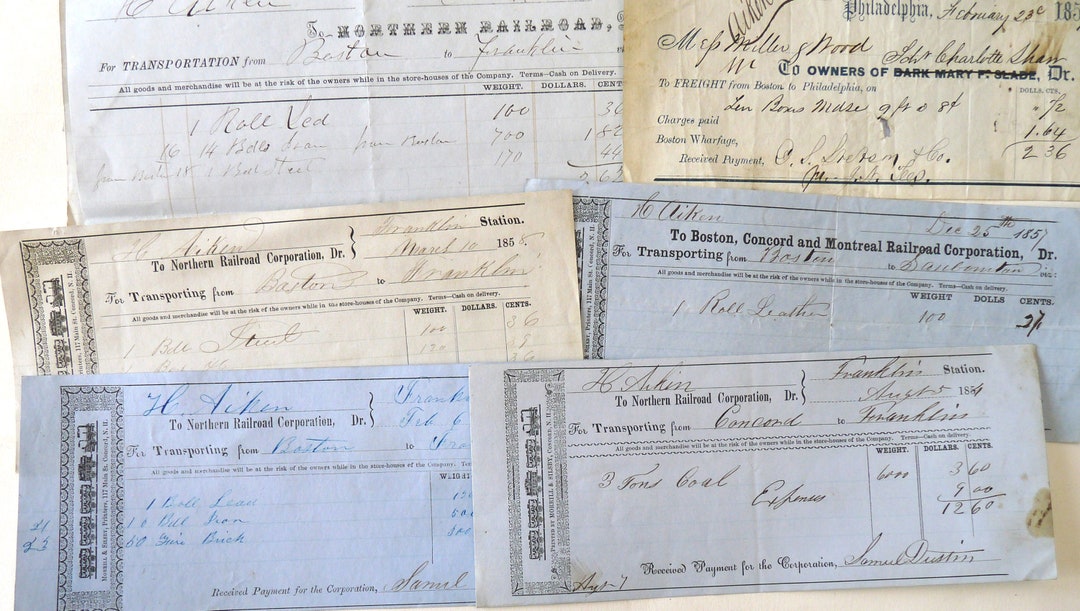 H Aiken
To NORTHERN RAILROAD,
For TRANSPORTATION from Boston to Franklin
All goods and merchandise will be at the risk of the owners while in the store-houses of the Company. Terms—Cash on Delivery.
WEIGHT. DOLLARS. CENT
1 Roll Led 100 36
16 14 Bdls Iron from Boston 700 1.82
1 Bdl Steel 170 44
2 62
Aiken
Philadelphia, February 23d 185
Mess Miller & Wood
Schr Charlotte Shaw
To OWNERS OF BARK MARY F. SLADE, Dr.
To FREIGHT from Boston to Philadelphia, on
DOLLS. CTS.
Ten Boxes Mdse 9 ft @ 8¢ 72
Charges paid
Boston Wharfage, 1.64
Received Payment, & Co. 2 36
H. Aiken
Franklin Station.
To Northern Railroad Corporation, Dr.
March 10 1855.
For Transporting from Boston to Franklin
All goods and merchandise will be at the risk of the owners while in the store-houses of the Company. Terms—Cash on delivery.
WEIGHT. DOLLARS. CENTS.
1 Bdl Steel 100 36
120
H Aiken
Dec 25th 1857
To Boston, Concord and Montreal Railroad Corporation, Dr.
For Transporting from Boston to
All goods and merchandise will be at the risk of the owners while in the store-houses of the Company. Terms—Cash on delivery.
WEIGHT DOLLS CENTS.
1 Roll Leather 100 27
H. Aiken
Frank
To Northern Railroad Corporation, Dr.
Feb 6
For Transporting from Boston to Fra
All goods and merchandise will be at the risk of the owners while in the store-houses of the Company. Term
WEIGHT
1 Roll Lead
10 Bdl Iron
50 Fire Brick
Received Payment for the Corporation, Samuel
MORRILL & SILSBY, Printers, 117 Main St. Concord, N. H.
H. Aikin
Franklin Station.
To Northern Railroad Corporation, Dr.
Augt 5 1854
For Transporting from Concord to Franklin
All goods and merchandise will be at the risk of the owners while in the store-houses of the Company. Terms—Cash on delivery.
WEIGHT. DOLLARS. CENTS.
3 Tons Coal 6000 3 60
Expenses 9 00
12 60
Received Payment for the Corporation, Samuel Dustin
Augt 7
PRINTED BY MORRILL & SILSBY, CONCORD, N. H.